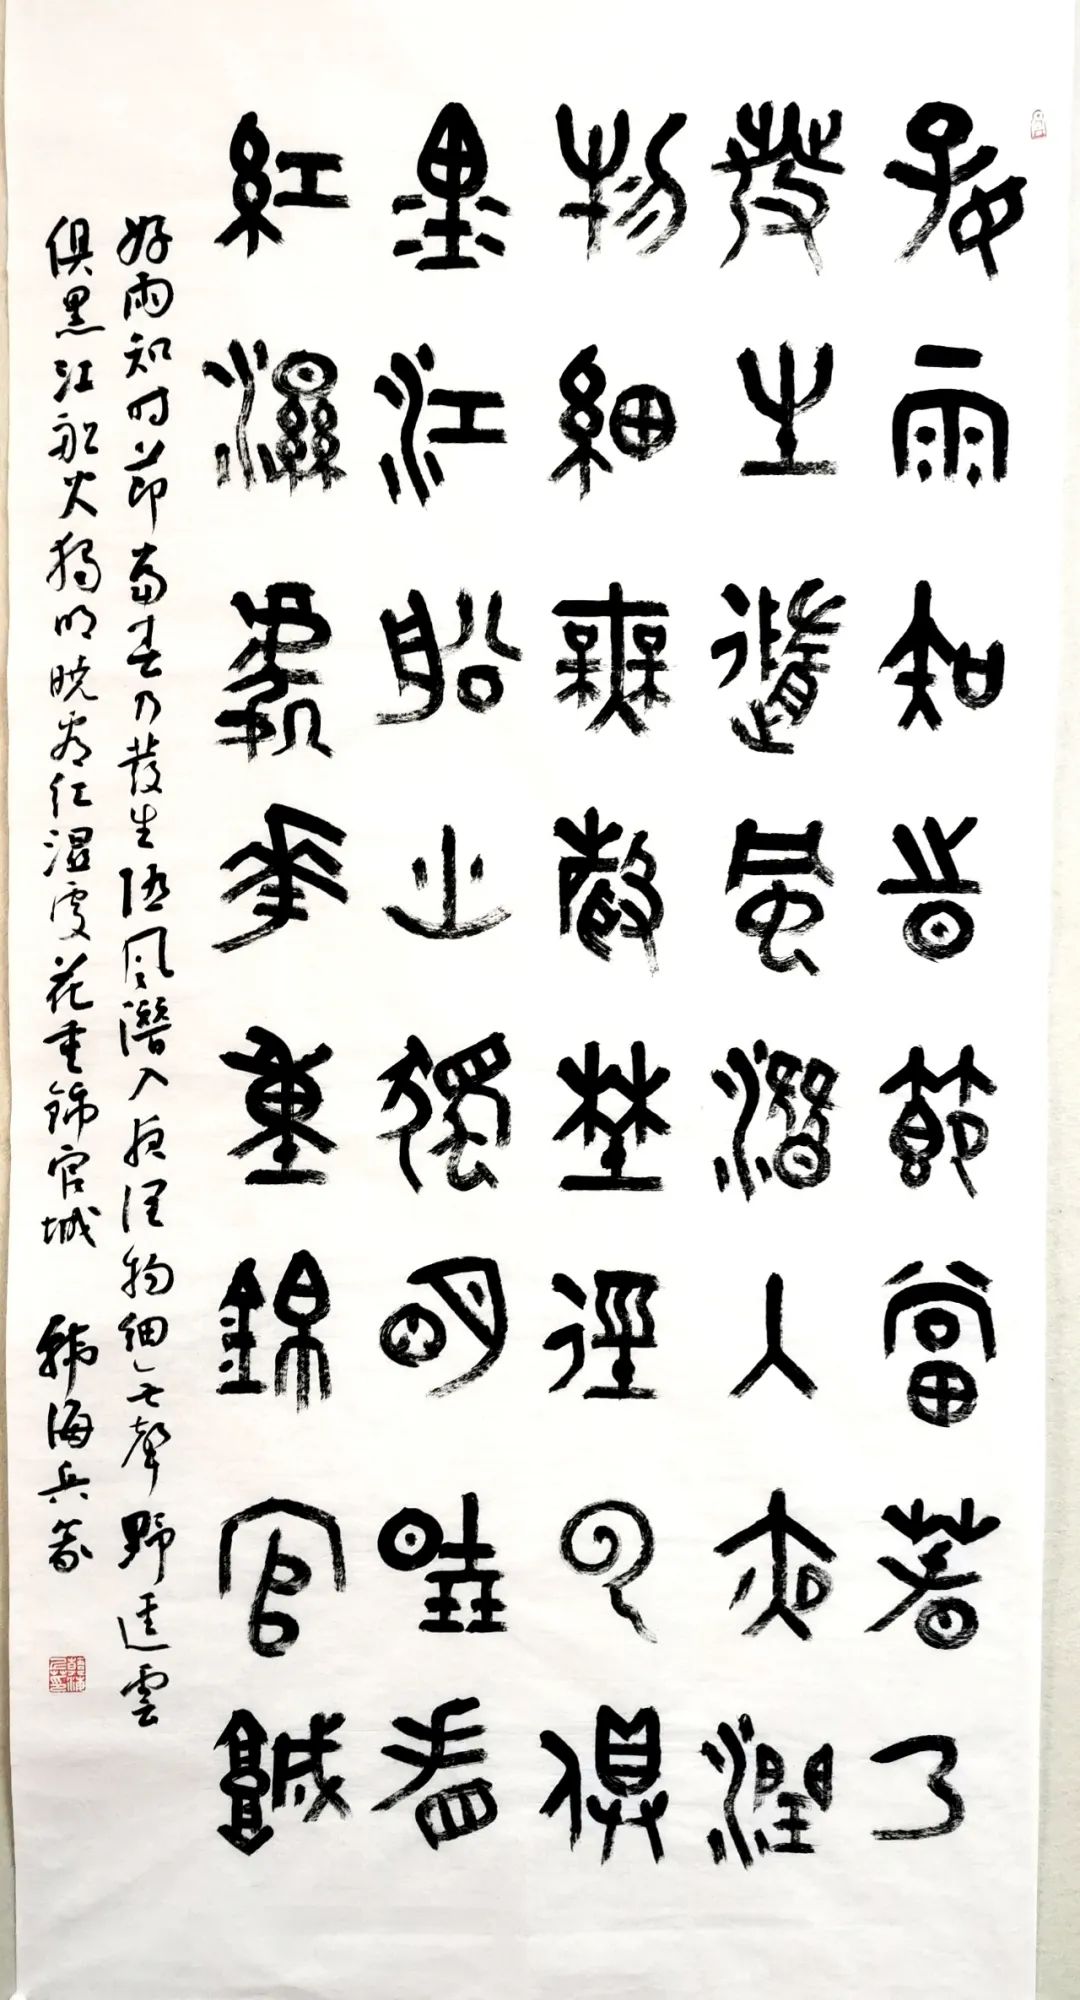 好雨知時節當春乃
發生隨風潛入夜潤
物細無聲野徑雲俱
黑江船火獨明曉看
紅濕處花重錦官城
好雨知时节當春乃發生随风潛入夜润物細無聲野徑雲
俱黑江船火獨明晓看红湿處花重锦官城 韩海兵篆